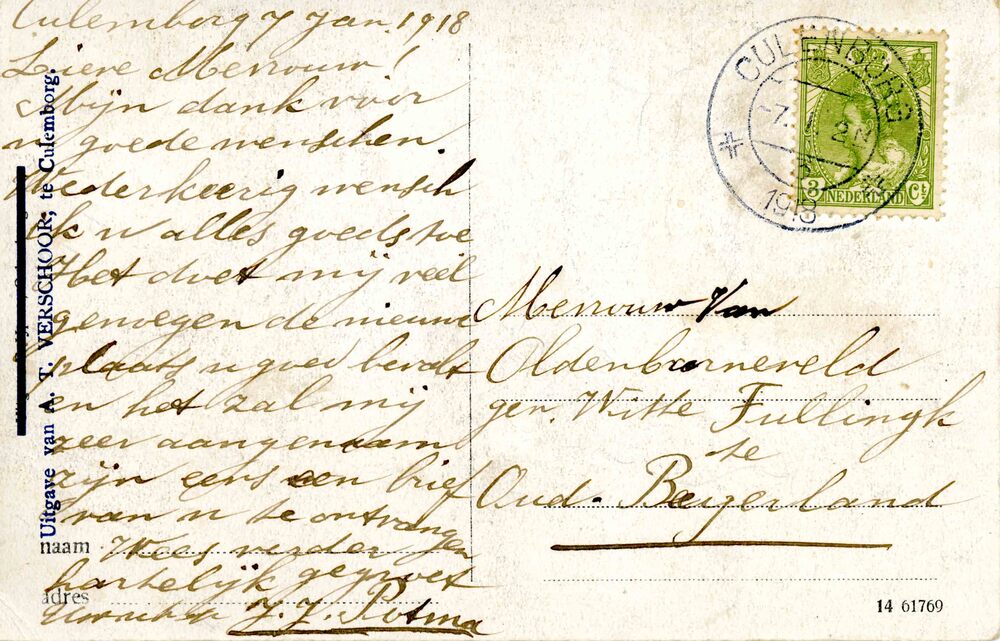 Culemborg 7 Jan. 1918
Lieve Mevrouw!
Mijn dank voor
u goede wenschen.
Wederkeerig wensch
ik u alles goeds toe
Het doet mij veel
genoegen de nieuwe
plaats u goed bevalt
en het zal mij
zeer aangenaam
zijn eens een brief
van u te ontvangen
Wees verder
hartelijk gegroet
J. J. Potma
naam
adres
Uitgave van A. T. VERSCHOOR, te Culemborg.
CULEMBORG
-7. 1. 8 N
1918
3 NEDERLAND Ct
Mevrouw Van
Oldenbarneveld
gen. Witte Tullingk
te
Oud-Beyerland
14 61769